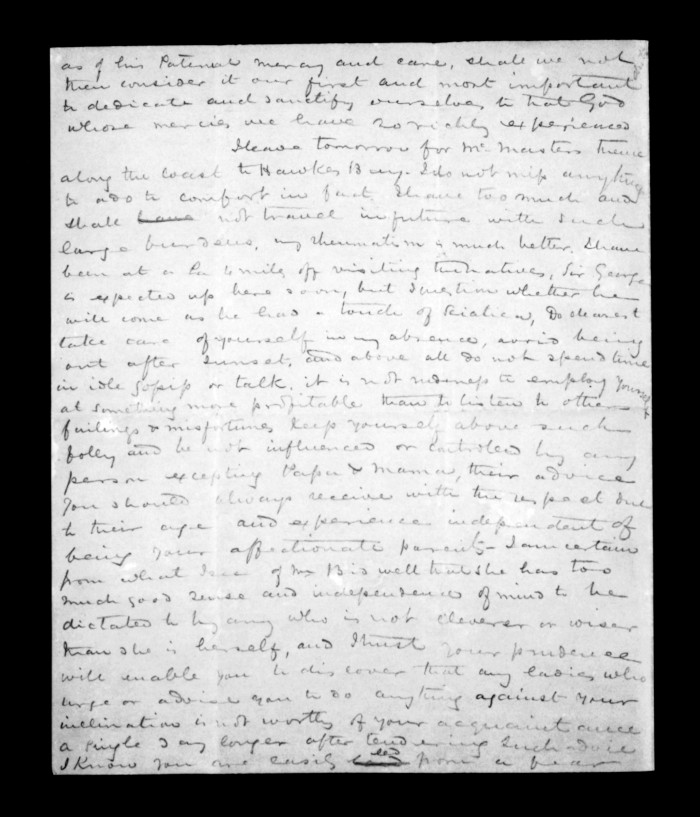 as of his Paternal mercy and care, shall we not
then consider it our first and most important
to dedicate and sanctify ourselves to that God
whose mercies we have so richly experienced
I leave tomorrow for Mr Masters thence
along the coast to Hawkes Bay. I do not miss anything
to add to comfort in fact I have too much and
shall have not travel in future with such
large burdens, my rheumatism is much better. I have
been at a Pa 6 miles off visiting the natives, Sir George
is expected up here soon, but I question whether he
will come as he had a touch of Sciatica, Do dearest
take care of yourself in my absence, avoid being
out after sunset, and above all do not spend time
in idle gossip or talk, it is not to employ yourself
at something more profitable than to listen to others
failings & misfortunes keep yourself above such
folly and be not influenced or controled by any
person excepting Papa & Mama, their advice
you should always receive with the respect due
to their age and experience independent of
being your affectionate parents - I am certain
from what I see of Mrs that she has too
much good sense and independence of mind to be
dictated to by any who is not cleverer or wiser
than she is herself, and I trust your prudence
will enable you to discover that any ladies who
urge or advise you to do anything against your
inclination is not worthy of your acquaintance
a single day longer after tendering such advice
I know you are easily led from a fear